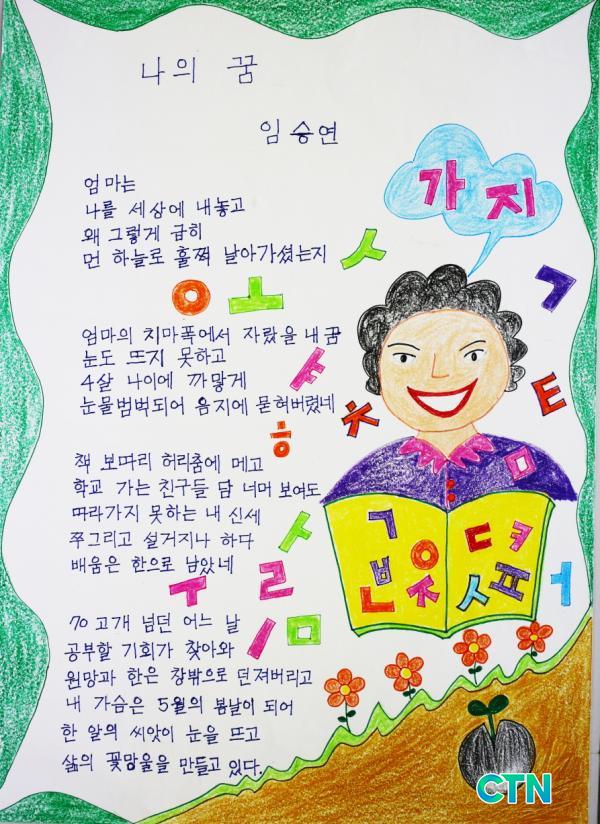 나의 꿈
임승연
엄마는
나를 세상에 내놓고
왜 그렇게 급히
먼 하늘로 훌쩍 날아가셨는지
가지
엄마의 치마폭에서 자랐을 내 꿈
눈도 뜨지 못하고
4살 나이에 까맣게
눈물범벅되어 음지에 묻혀버렸네
책 보따리 허리춤에 메고
학교 가는 친구들 담 너머 보여도
따라가지 못하는 내 신세
쭈그리고 설거지나 하다
배움은 한으로 남았네
70 고개 넘던 어느 날
공부할 기회가 찾아와
원망과 한은 창밖으로 던져버리고
내 가슴은 5월의 봄날이 되어
한 알의 씨앗이 눈을 뜨고
삶의 꽃망울을 만들고 있다.
CTN